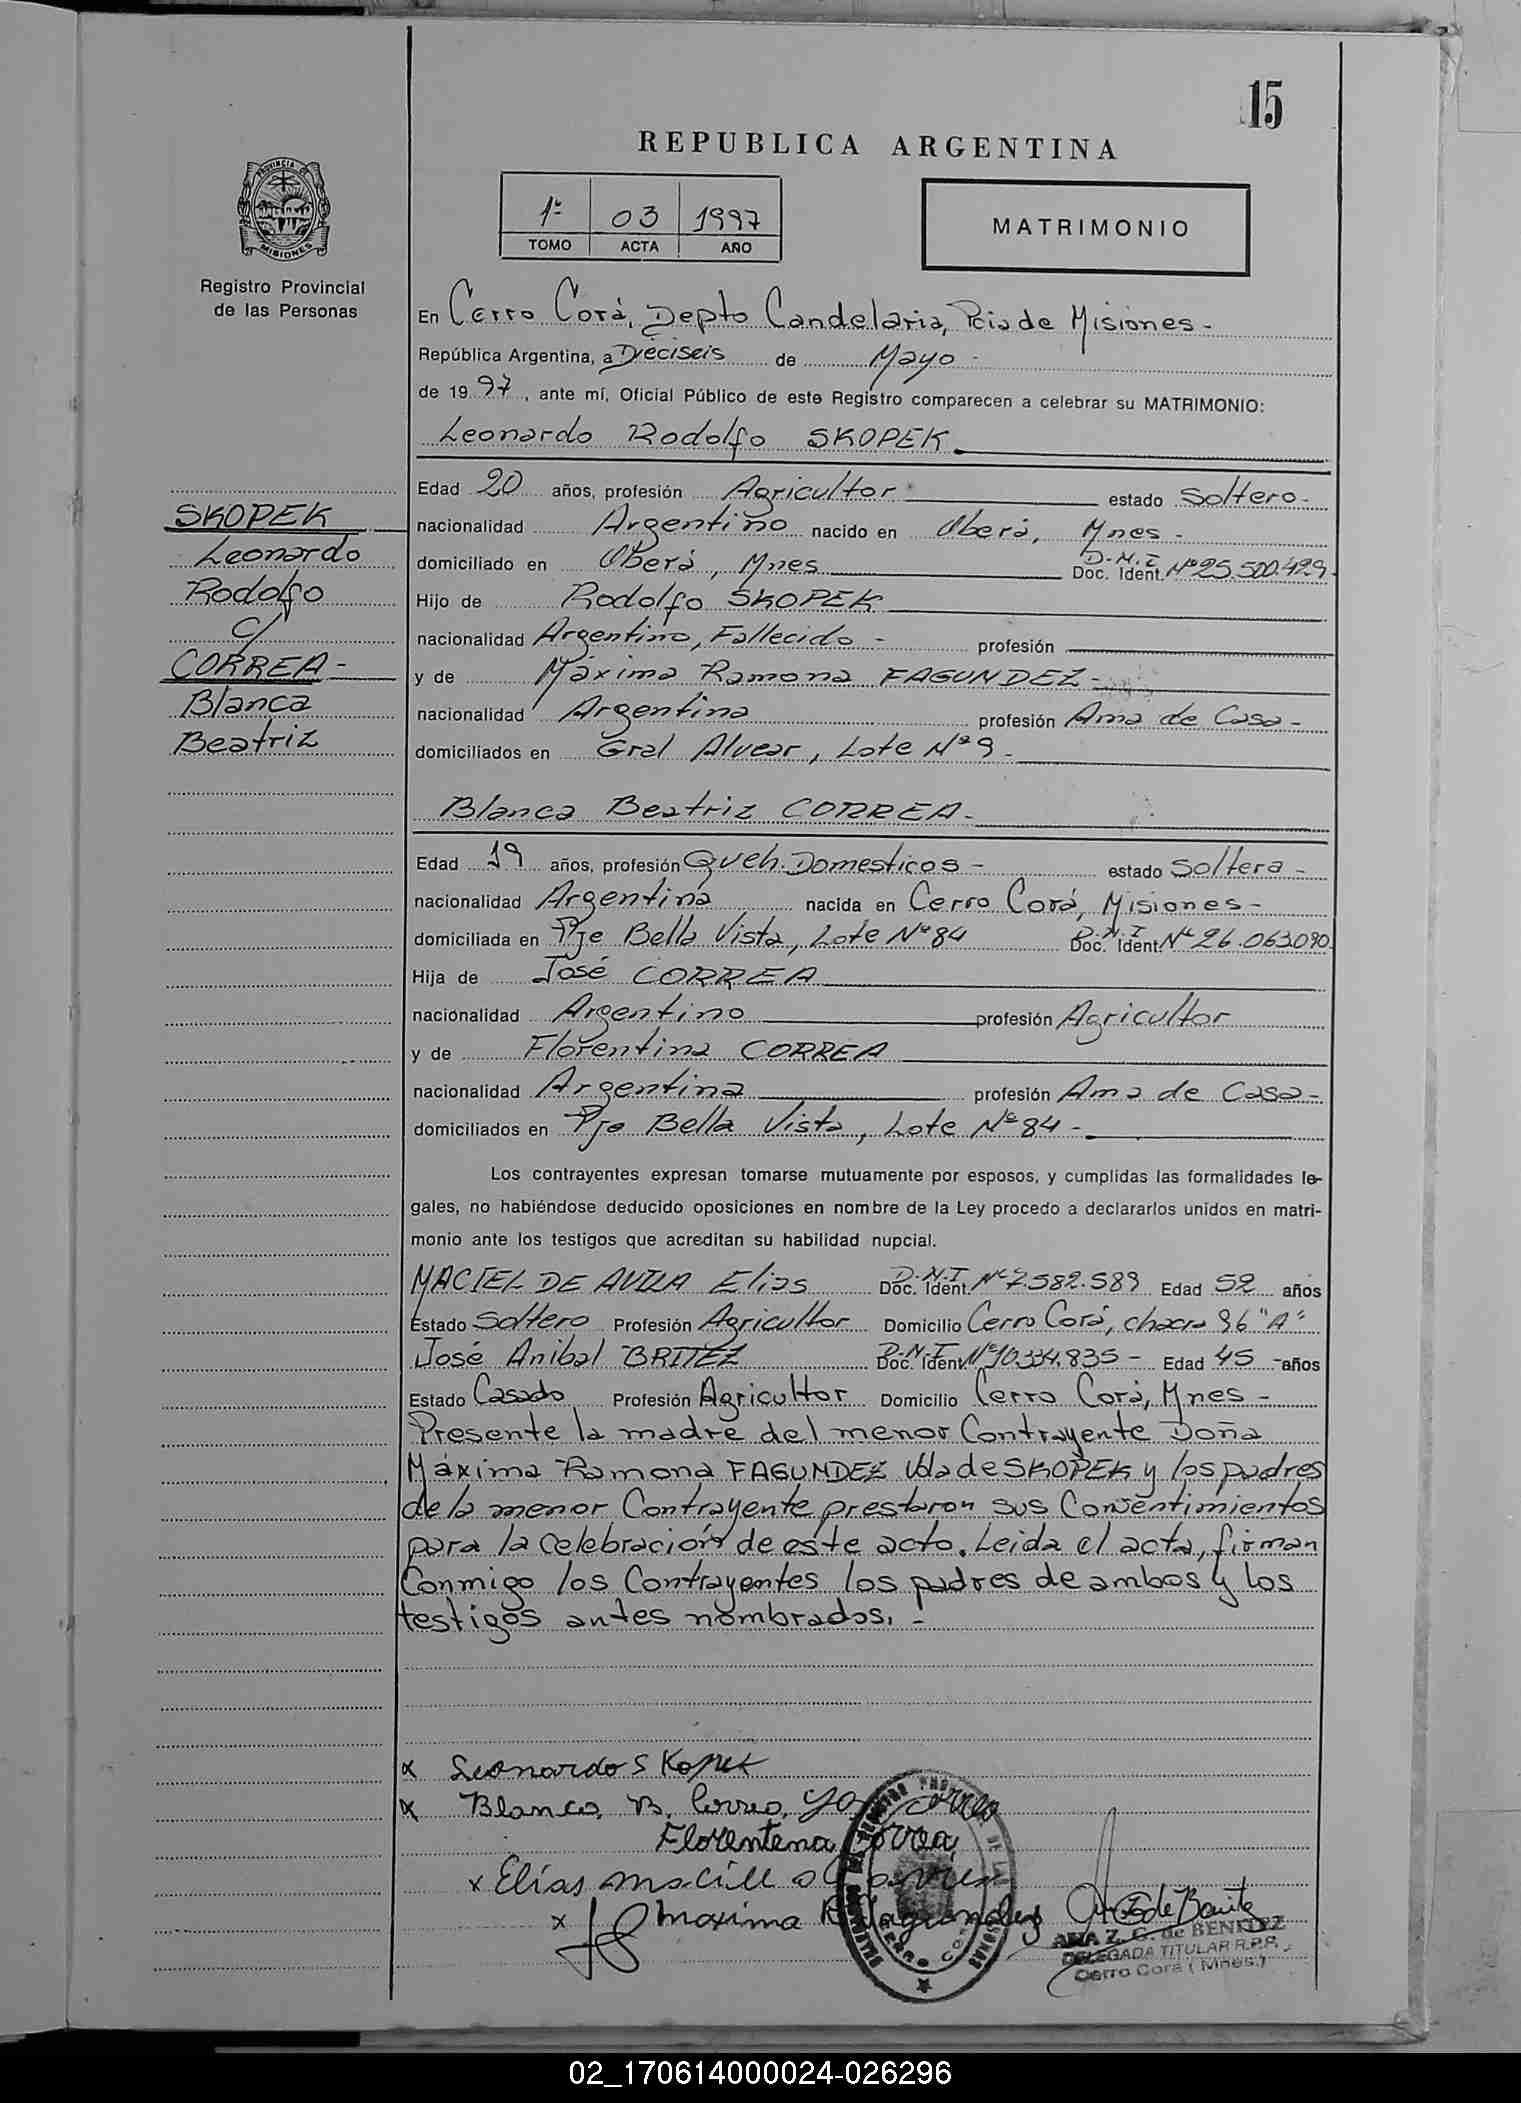 15
REPUBLICA ARGENTINA
1º 03 1997
TOMO ACTA AÑO
MATRIMONIO
PROVINCIA DE
MISIONES
Registro Provincial
de las Personas
SKOPEK
Leonardo
Rodolfo
c/
CORREA-
Blanca
Beatriz
En Cerro Corá, Depto Candelaria, Pcia de Misiones-
República Argentina, a Dieciseis de Mayo-
de 1997, ante mí, Oficial Público de este Registro comparecen a celebrar su MATRIMONIO:
Leonardo Rodolfo SKOPEK
Edad 20 años, profesión Agricultor estado Soltero-
nacionalidad Argentino nacido en Oberá, Mnes-
domiciliado en Oberá, Mnes D.N.I Doc. Ident. Nº 25.500.429-
Hijo de Rodolfo SKOPEK
nacionalidad Argentino, Fallecido- profesión
y de Máxima Ramona FAGUNDEZ-
nacionalidad Argentina profesión Ama de Casa-
domiciliados en Gral Alvear, Lote Nº 9-
Blanca Beatriz CORREA-
Edad 19 años, profesión Queh. Domesticos- estado Soltera-
nacionalidad Argentina nacida en Cerro Corá, Misiones-
domiciliada en Pje Bella Vista, Lote Nº 84 D.N.I Doc. Ident. Nº 26.063.090
Hija de José CORREA
nacionalidad Argentino profesión Agricultor
y de Florentina CORREA
nacionalidad Argentina profesión Ama de Casa-
domiciliados en Pje Bella Vista, Lote Nº 84-
Los contrayentes expresan tomarse mutuamente por esposos, y cumplidas las formalidades le-
gales, no habiéndose deducido oposiciones en nombre de la Ley procedo a declararlos unidos en matri-
monio ante los testigos que acreditan su habilidad nupcial.
MACIEL DE AVILA Elias D.N.I Doc. Ident. Nº 7.582.589 Edad 52 años
Estado Soltero Profesión Agricultor Domicilio Cerro Corá, chacra 96 "A"
José Anibal BRITEZ D.N.I Doc. Ident. Nº 10.334.835- Edad 45 -años
Estado Casado Profesión Agricultor Domicilio Cerro Corá, Mnes-
Presente la madre del menor Contrayente Doña
Máxima Ramona FAGUNDEZ Vda de SKOPEK y los padres
de la menor Contrayente prestaron sus Consentimientos
para la celebración de este acto. Leida el acta, firman
Conmigo los Contrayentes los padres de ambos y los
testigos antes nombrados.-
x Leonardo Skopek
x Blanca B. Correa,
Florentena Correa
x Elías
x Maxima R Fagundez
ANA Z. G. de BENITEZ
DELEGADA TITULAR R.P.P.
Cerro Corá (Mnes.)
02_170614000024-026296